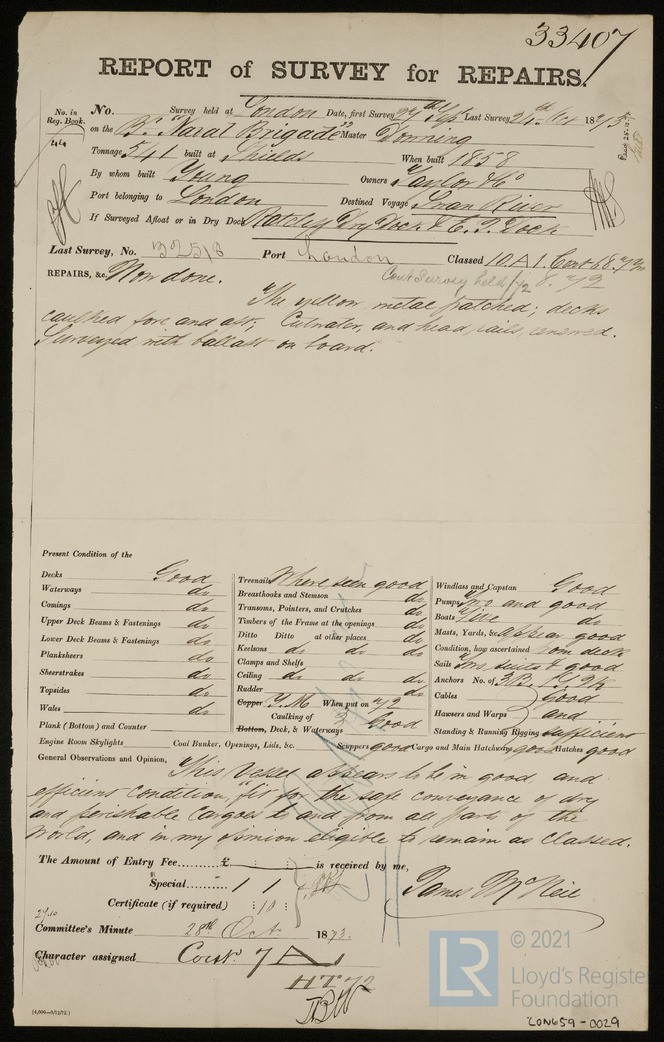 33407
REPORT of SURVEY for REPAIRS.
No. in Reg. Book. No. Survey held at London Date, first Survey 27th Sept Last Survey 24th Oct 1873
44 on the Bk "Naval Brigade" Master Donning
Tonnage 541 built at Shields When built 1858
By whom built Young Owners Taylor & Co
Port belonging to London Destined Voyage Swan River
If Surveyed Afloat or in Dry Dock Ratcliff Dry Dock & E. I. Dock
Last Survey, No. 32518 Port London Classed 10. A1. Cont 68.
REPAIRS, &c. Now done. Cont Survey held 8. 72
The yellow metal patched; decks
caulked fore and aft; Cutwater, and head rails renewed.
Surveyed with ballast on board.
Present Condition of the
Decks Good
Waterways do
Comings do
Upper Deck Beams & Fastenings do
Lower Deck Beams & Fastenings do
Planksheers do
Sheerstrakes do
Topsides do
Wales do
Plank (Bottom) and Counter
Engine Room Skylights Coal Bunker, Openings, Lids, &c. Scuppers good Cargo and Main Hatchways good Hatches good
Treenails Where seen good
Breasthooks and Stemson do
Transoms, Pointers, and Crutches do
Timbers of the Frame at the openings do
Ditto Ditto at other places do
Keelsons do do do
Clamps and Shelfs do
Ceiling do do do
Rudder do
Copper Y.M. When put on 72
Caulking of
Bottom, Deck, & Waterways Good
Windlass and Capstan Good
Pumps Two and good
Boats Five do
Masts, Yards, &c. appear good
Condition, how ascertained from deck
Sails Two suits & good
Anchors No. of 3B. 1S. 2K
Cables good
Hawsers and Warps and
Standing & Running Rigging sufficient
General Observations and Opinion, This Vessel appears to be in good and
efficient condition, fit for the safe conveyance of dry
and perishable Cargoes to and from all parts of the
World, and in my opinion eligible to remain as Classed.
The Amount of Entry Fee £ is received by me,
Special 1 1
James McNeil
Certificate (if required) : 10 :
Committee's Minute 28th Oct 1873.
Character assigned Cont. 7 A1
HT 72
[4,000—9/12/72.]
LR © 2021
Lloyd's Register
Foundation
LON659-0029